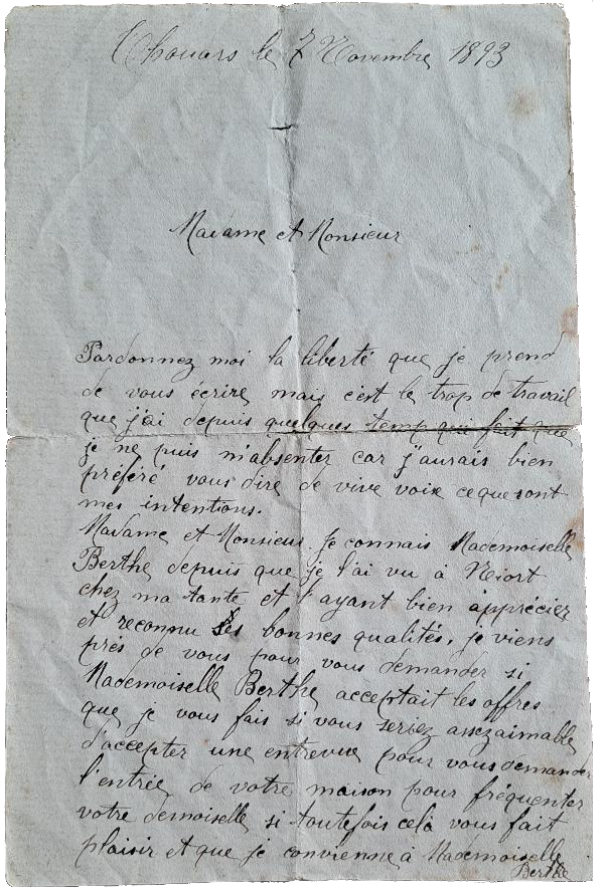 Thouars le 7 Novembre 1893
Madame et Monsieur
Pardonnez moi la liberté que je prend
de vous écrire mais c'est le trop de travail
que j'ai depuis quelques temp qui fait que
je ne puis m'absenter car j'aurais bien
préféré vous dire de vive voix ce que sont
mes intentions.
Madame et Monsieur je connais Mademoiselle
Berthe depuis que je l'ai vu à Niort
chez ma tante et l'ayant bien apprécier
et reconnu ses bonnes qualités, je viens
près de vous pour vous demander si
Mademoiselle Berthe acceptait les offres
que je vous fais si vous seriez assez aimable
d'accepter une entrevue pour vous demander
l'entrée de votre maison pour fréquenter
votre demoiselle si toutefois celà vous fait
plaisir et que je convienne à Mademoiselle
Berthe